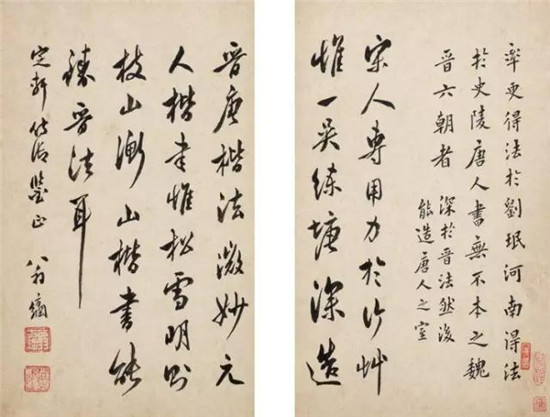 率更得法於劉珉河南得法
於史陵唐人書無不本之魏
晉六朝者
深於晉法然後
能造唐人之室
宋人專用力於行艸
惟一吴練塘深造
晋唐楷法微妙元
人楷書惟松雪明則
枝山衡山楷書能
臻晋法耳
定軒鑒正